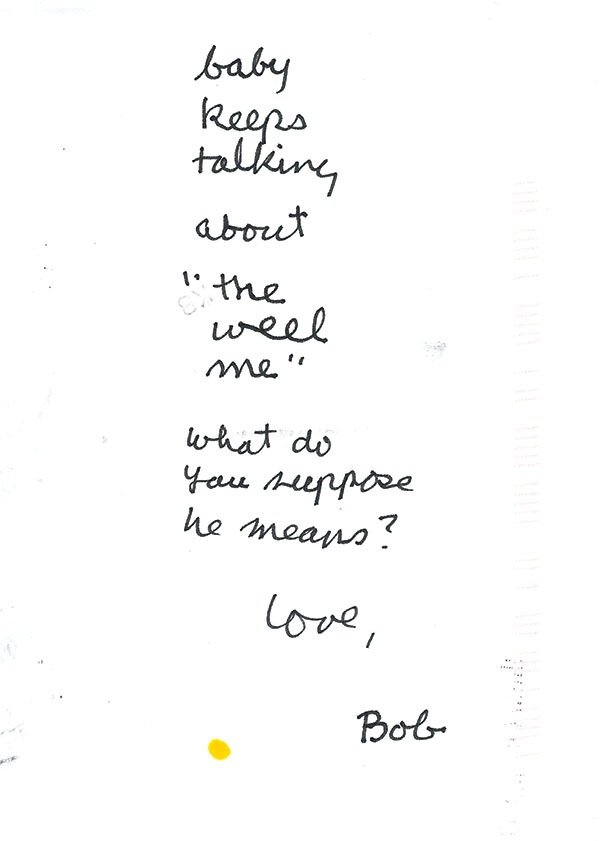 baby
keeps
talking
about
"the
weel
me"
what do
you suppose
he means?
Love,
Bob